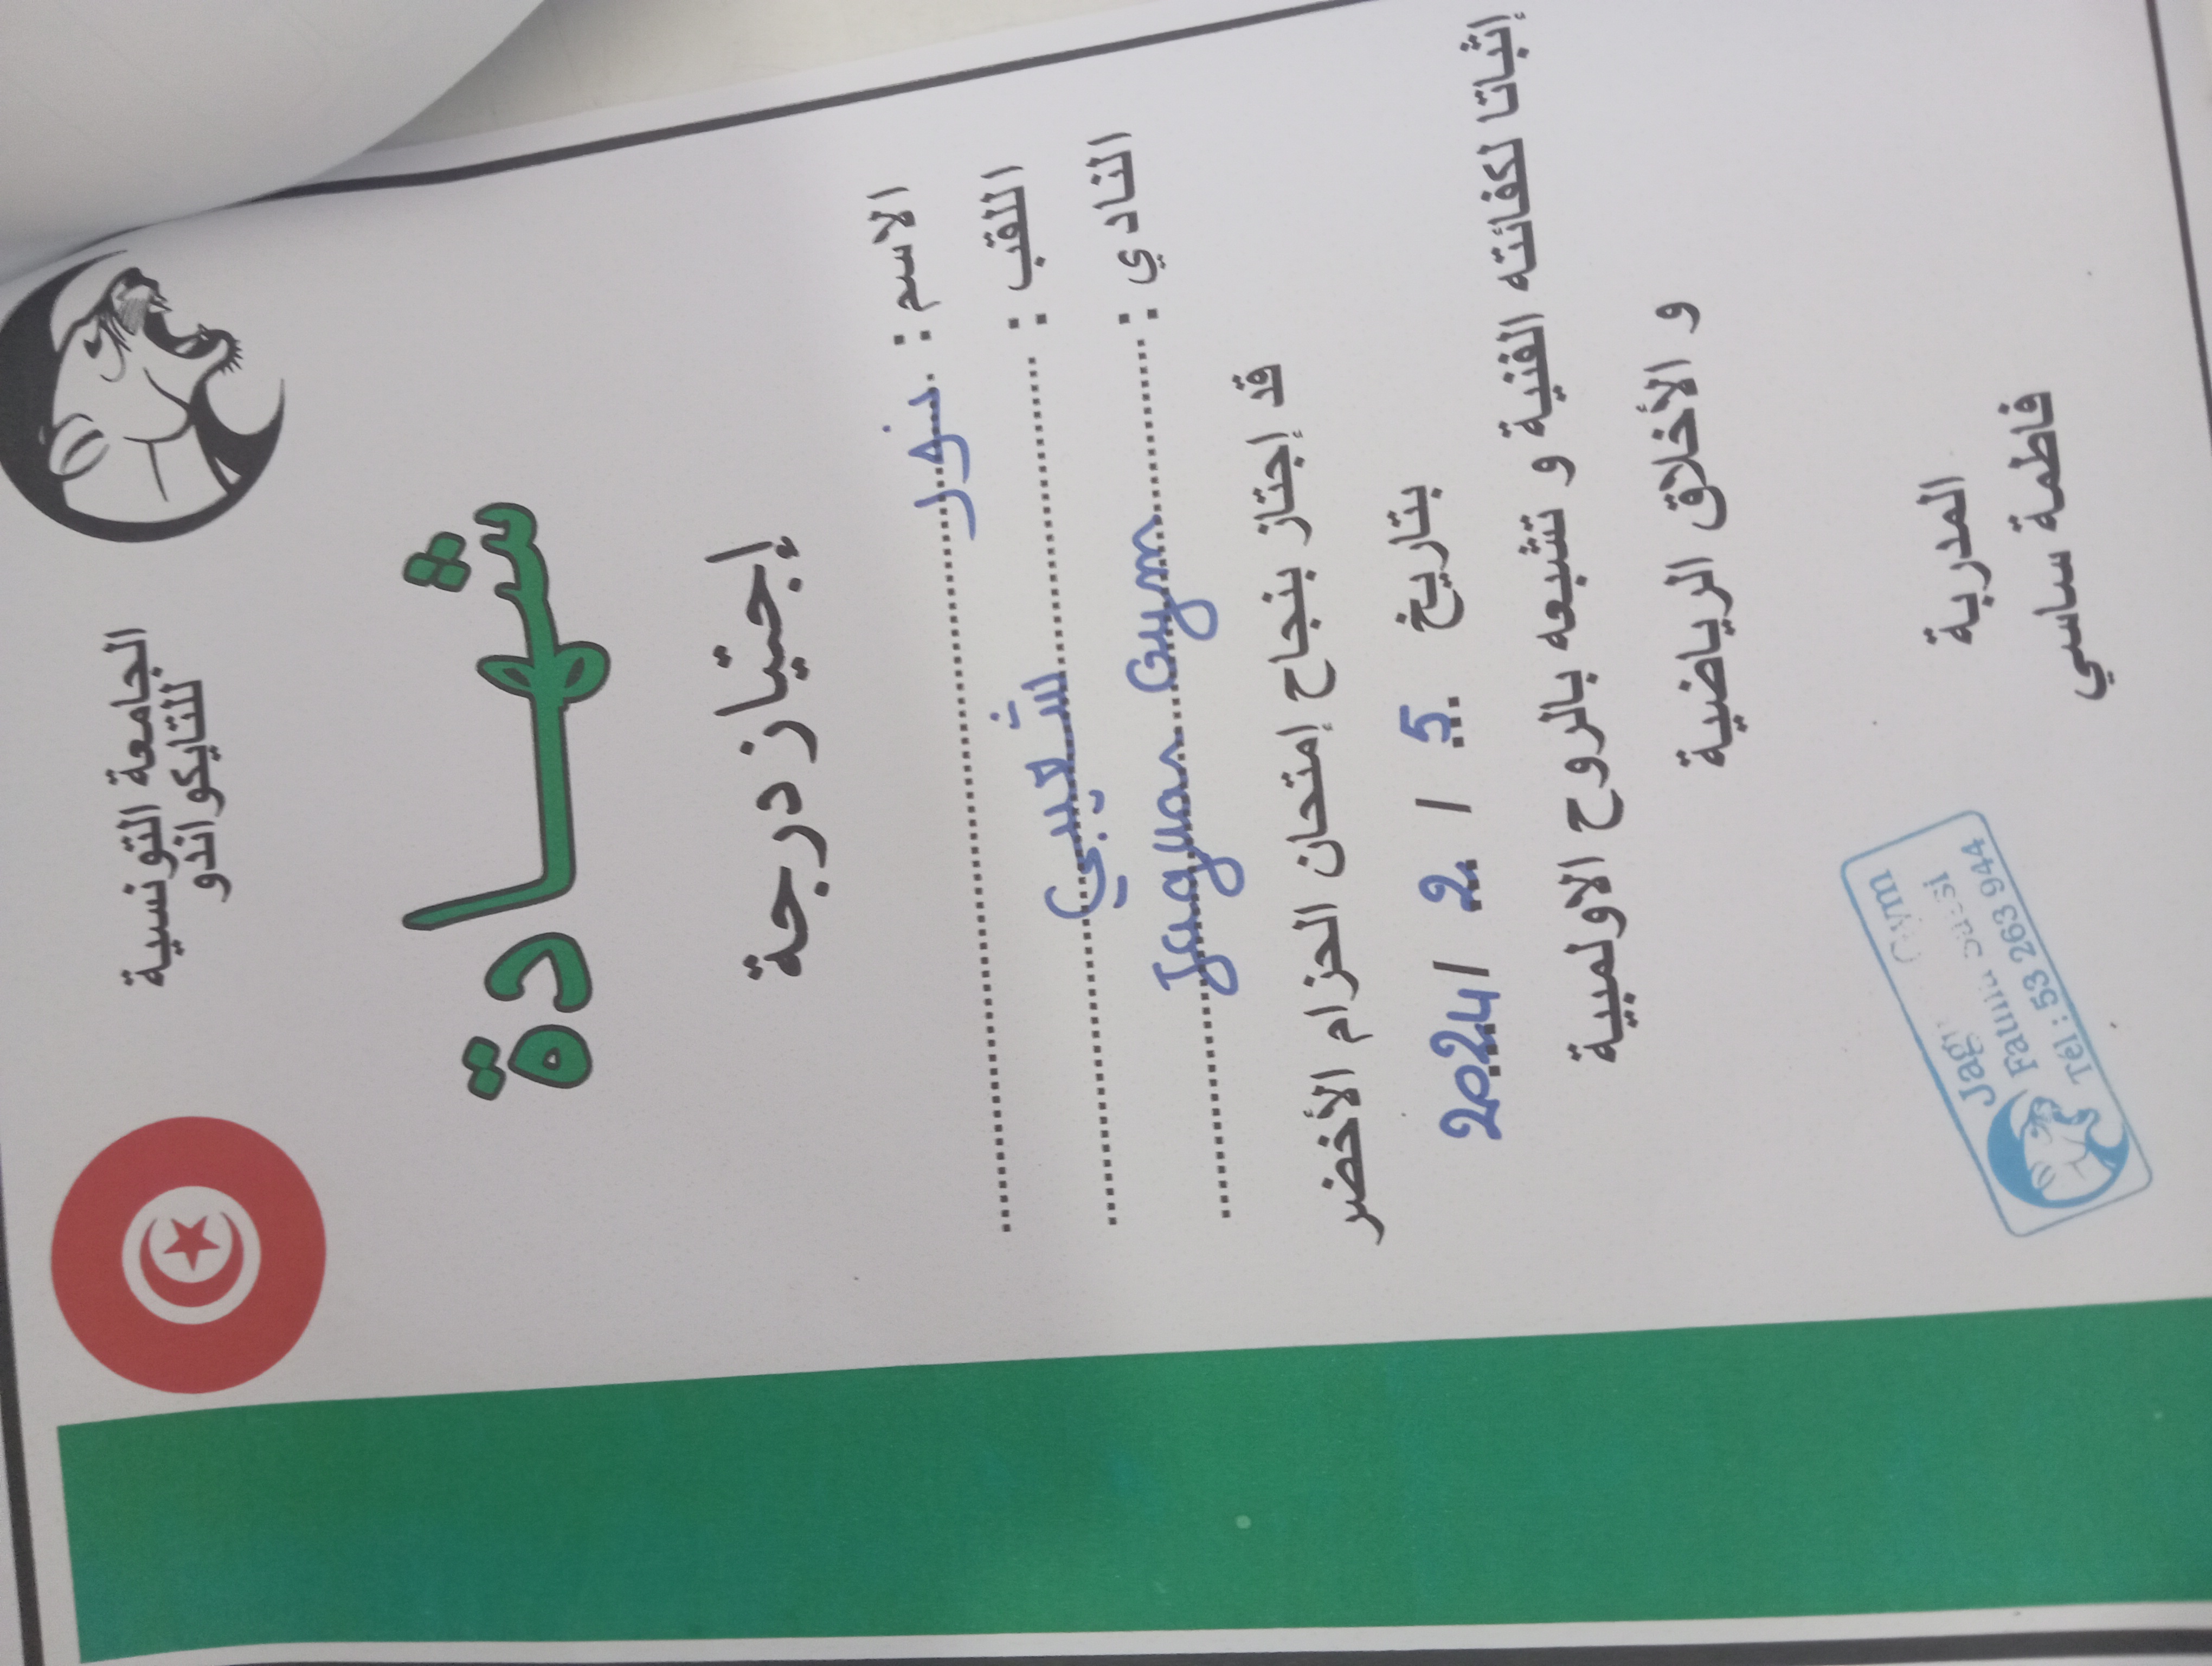 الجامعة التونسية
للتايكواندو
شهادة
إجتياز درجة
الاسم : نور
اللقب : شعيبي
النادي : Jaguar Gym
قد إجتاز بنجاح إمتحان الحزام الأخضر
بتاريخ 5 / 2 / 2024
إثباتا لكفائته الفنية و تشبعه بالروح الاولمبية
و الأخلاق الرياضية
المدربة
فاطمة ساسي
Gym
Fatma Sassi
Tél : 53 263 944